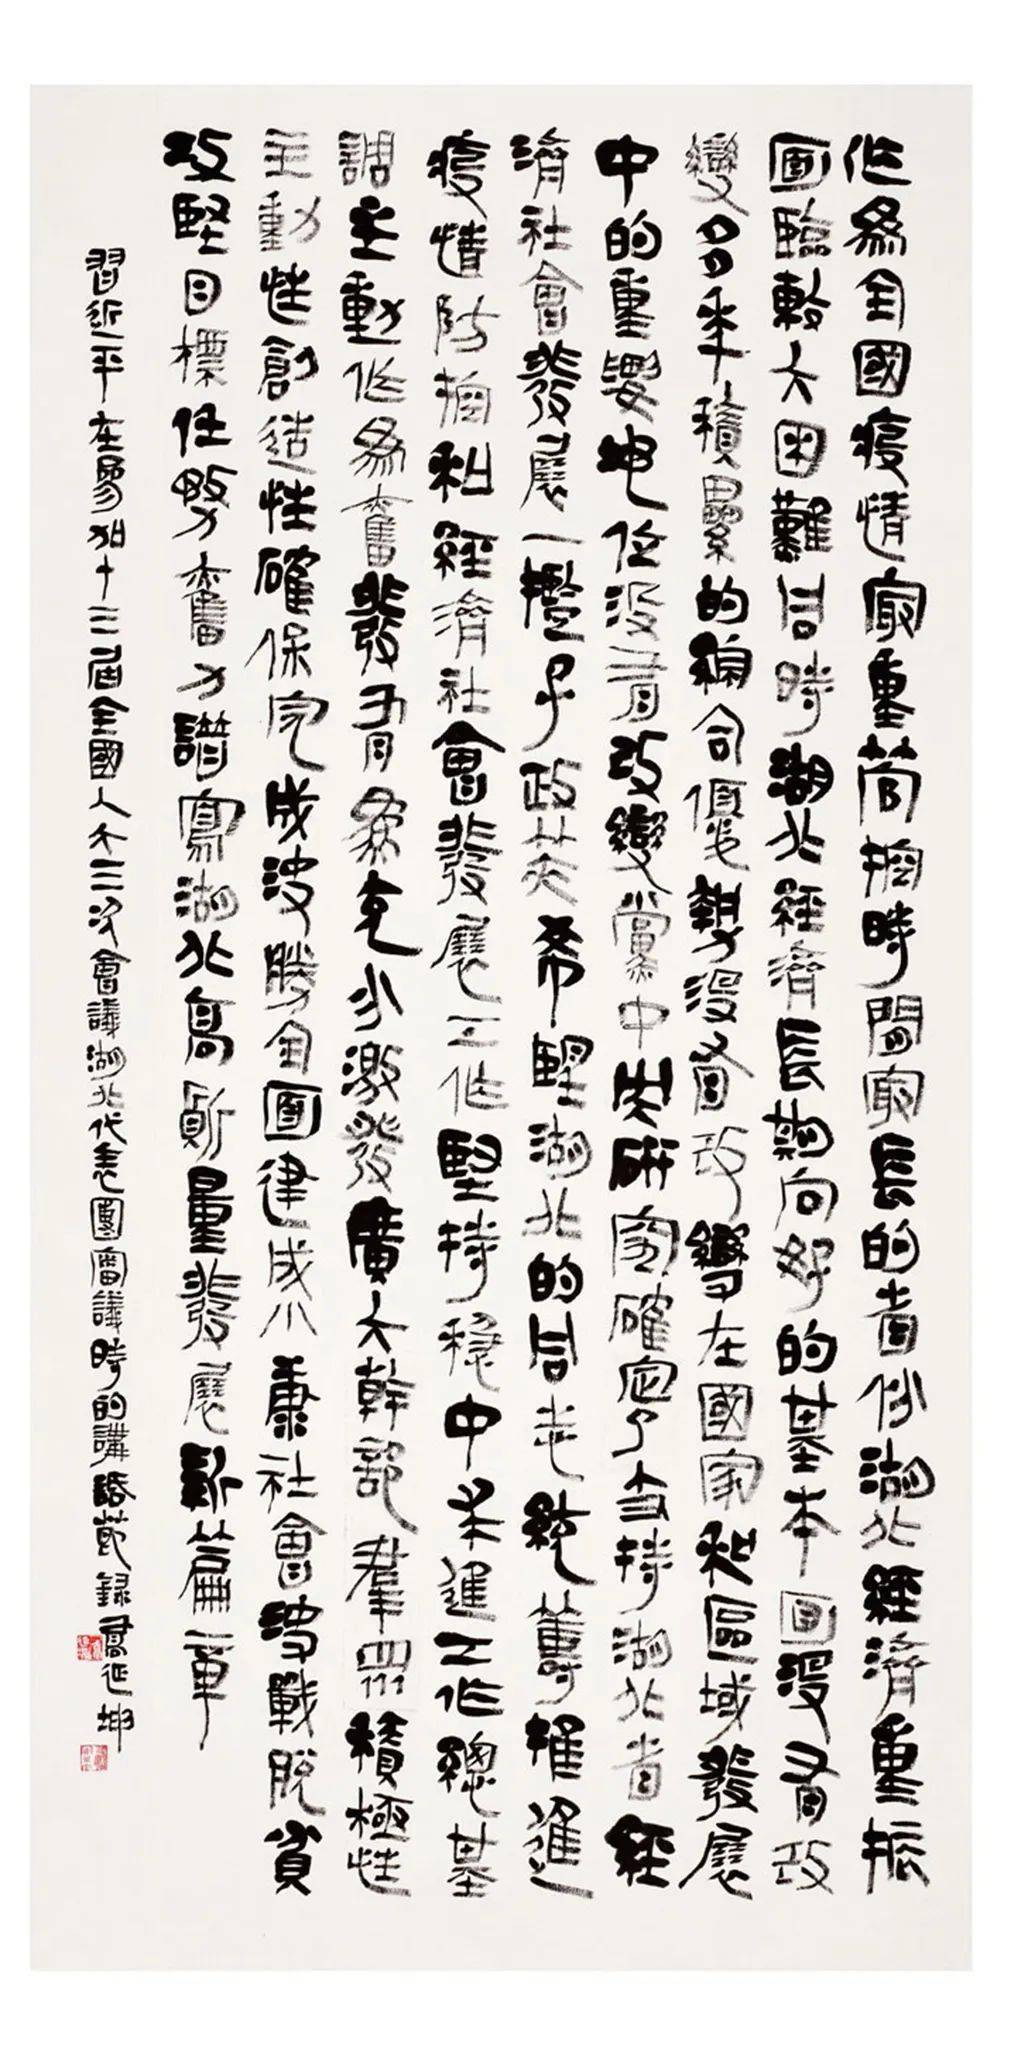 作為全國疫情最重管控時間最長的省份湖北經濟重振
面臨較大困難同時湖北經濟長期向好的基本面沒有改
變多年積累的綜合優勢沒有改變在國家和區域發展
中的重要地位沒有改變黨中央研究確定了支持湖北省經
濟社會發展一攬子政策希望湖北的同志統籌推進
疫情防控和經濟社會發展工作堅持穩中求進工作總基
調主動作為奮發有為充分激發廣大幹部群眾積極性
主動性創造性確保完成決勝全面建成小康社會決戰脫貧
攻堅目標任務奮力譜寫湖北高質量發展新篇章
習近平在參加十三屆全國人大三次會議湖北代表團審議時的講話節錄高延坤